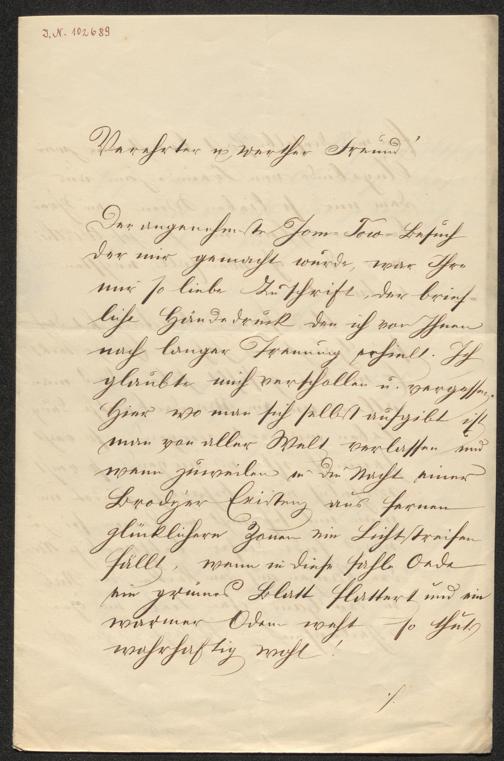 J.N. 102689
Verehrter u. werther Freund!
Der angenehmste Jom-Tow-Besuch
der mir gemacht wurde, war Ihre
mir so liebe Zuschrift, der brief-
liche Händedruck den ich von Ihnen
nach langer Trennung erhielt. Ich
glaubte mich verschollen u. vergessen.
Hier wo man sich selbst aufgibt ist
man von aller Welt verlassen und
wenn zuweilen in die Nacht einer
Brodyer Existenz aus fernen
glücklichern Zonen ein Lichtstreifen
fällt, wenn in diese fahle Oede
ein grünes Blatt flattert und ein
warmer Odem weht so thut's
wahrhaftig wohl!
./.